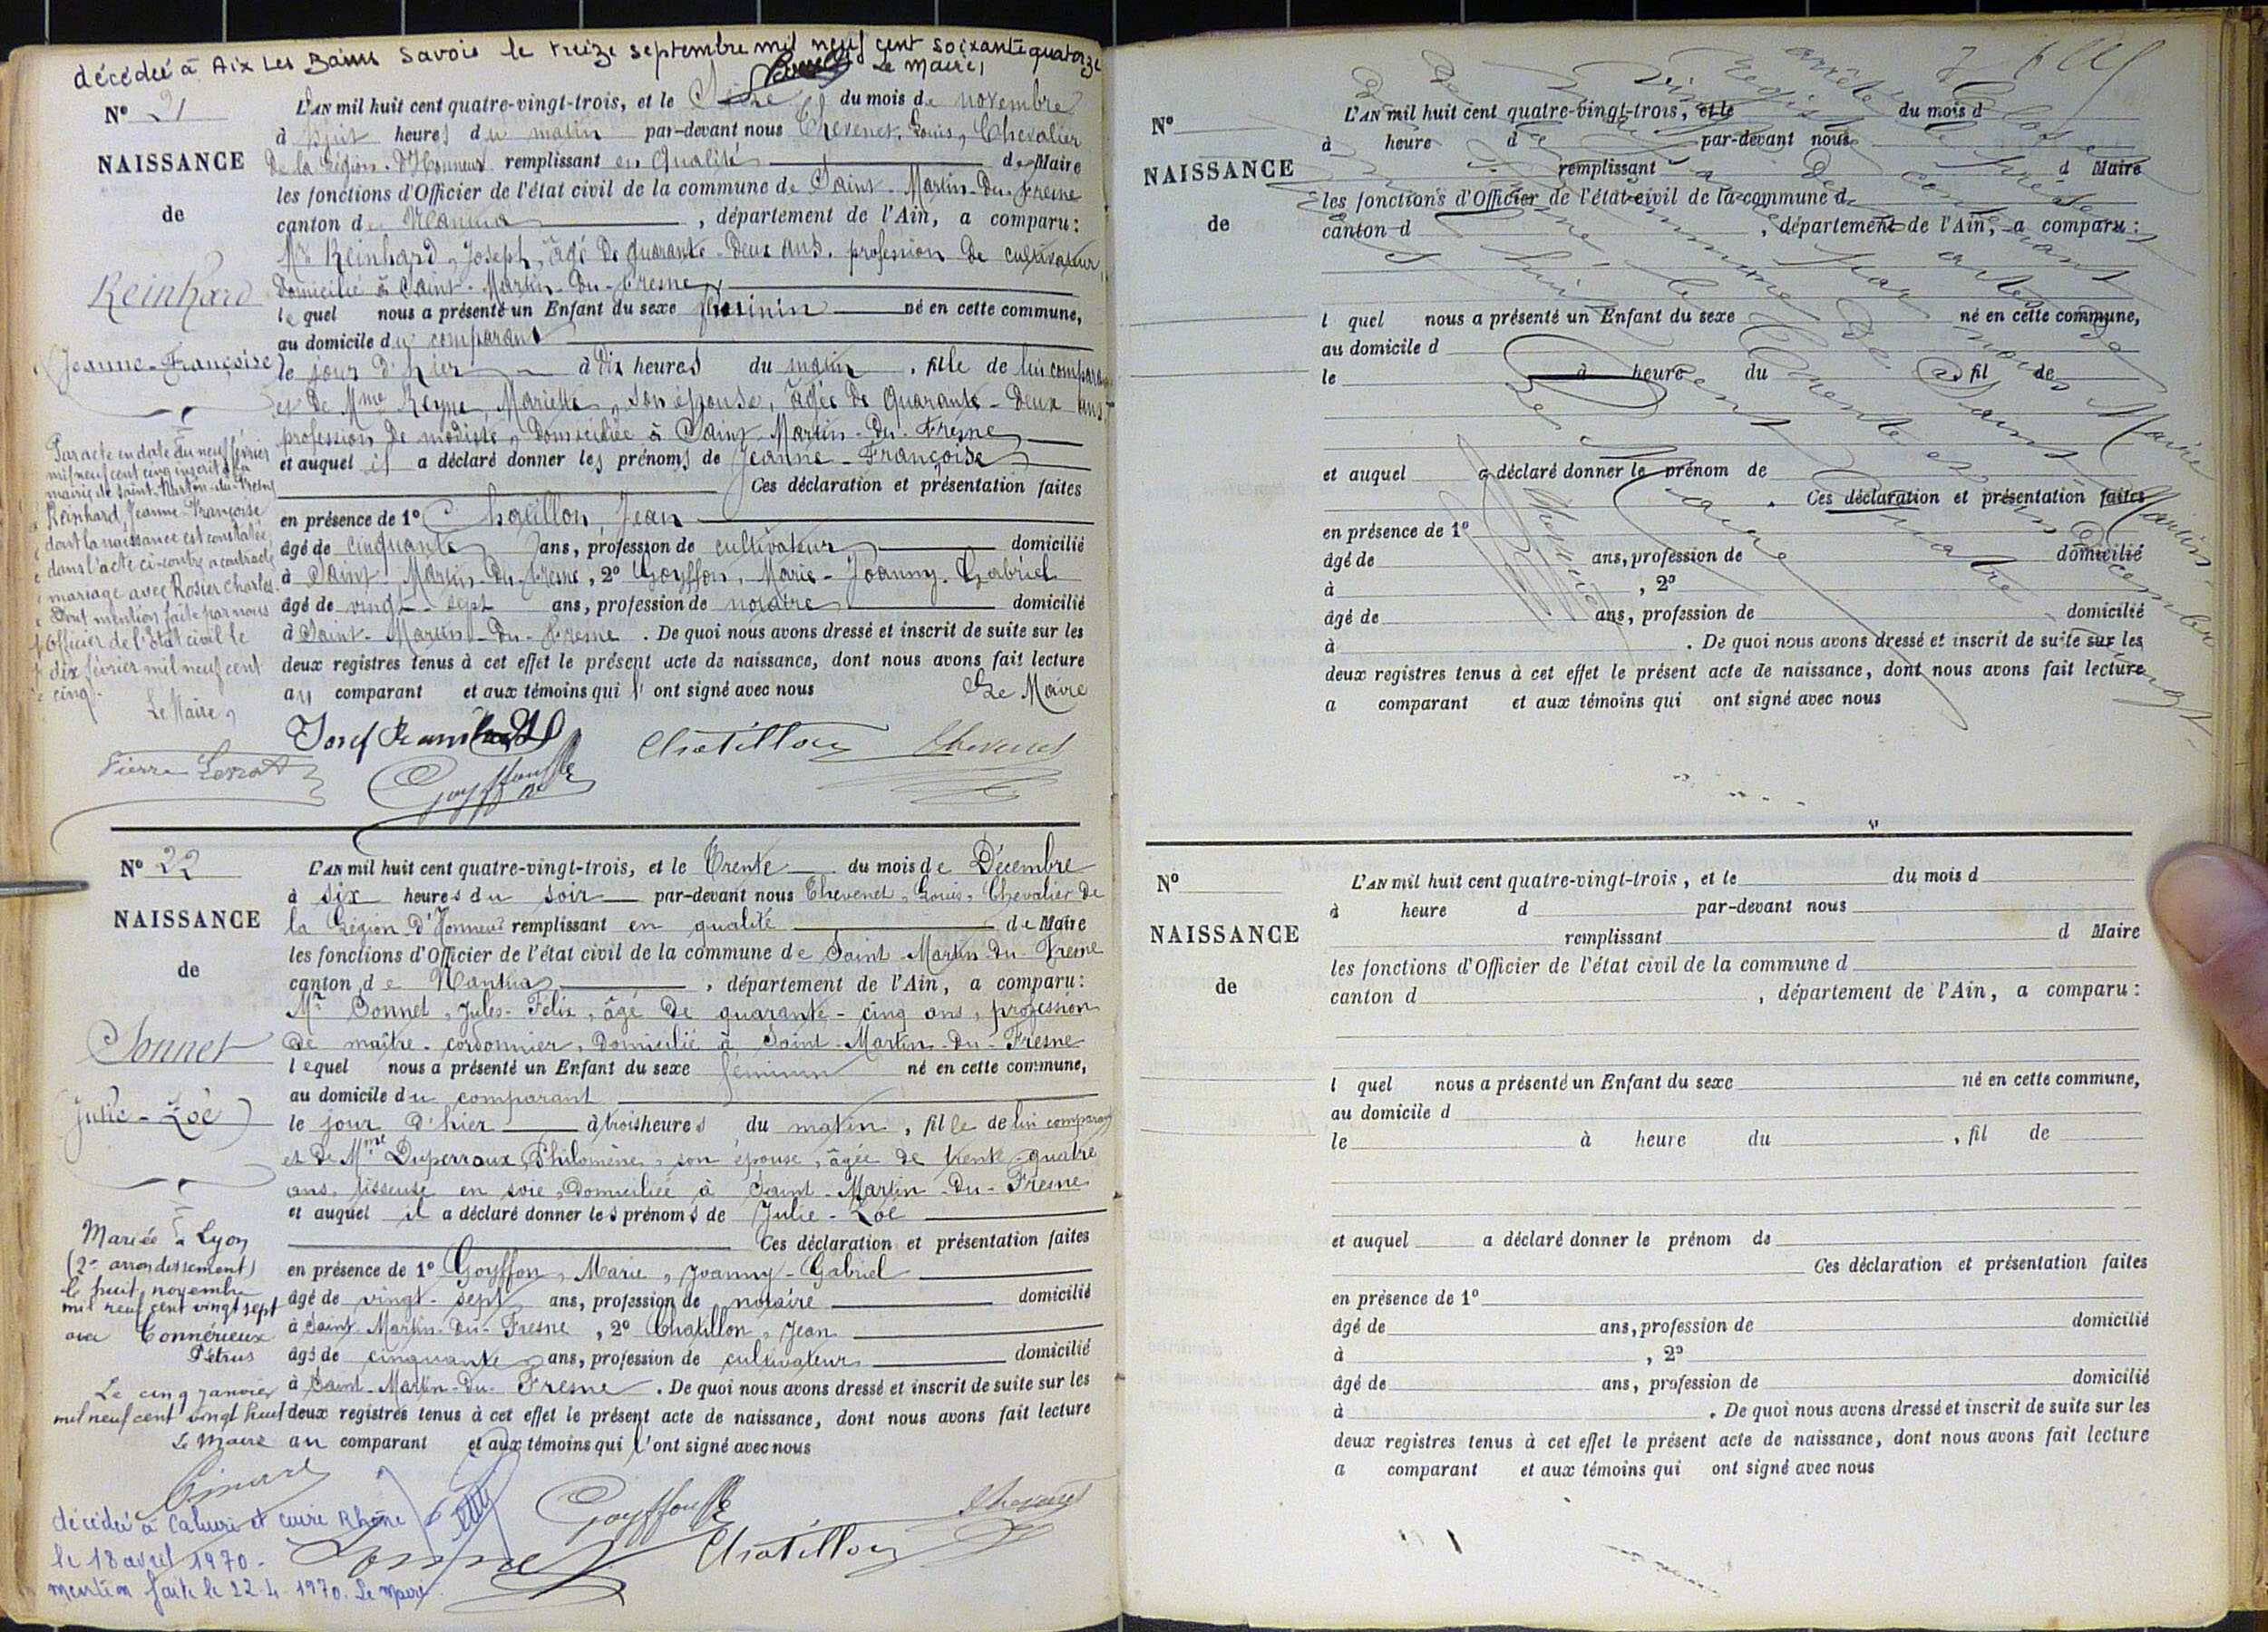 décédée à Aix Les Bains Savoie le treize septembre mil neuf cent soixante quatorze
Le Maire,
N° 21
NAISSANCE
de
Reinhard
(Jeanne-Françoise)
Par acte en date du neuf février
mil neuf cent cinq inscrit à la
mairie de Saint-Martin-du-Fresne
Reinhard, Jeanne-Françoise
dont la naissance est constatée
dans l'acte ci-contre a contracté
mariage avec Rosier Charles.
Dont mention faite par nous
Officier de l'Etat civil le
dix février mil neuf cent
cinq.
Le Maire,
L'AN mil huit cent quatre-vingt-trois, et le du mois de novembre
à huit heures du matin par-devant nous Thevenet, Louis, Chevalier
de la Légion d'Honneur remplissant en qualité de Maire
les fonctions d'Officier de l'état civil de la commune de Saint-Martin-du-Fresne
canton de Nantua, département de l'Ain, a comparu:
Mr Reinhard, Joseph, âgé de quarante-deux ans, profession de cultivateur,
domicilié à Saint-Martin-du-Fresne,
lequel nous a présenté un Enfant du sexe féminin né en cette commune,
au domicile du comparant
le jour d'hier à dix heures du matin, fille de lui comparant
et de Mme Reyne, Mariette, son épouse, âgée de quarante-deux ans,
profession de modiste, domiciliée à Saint-Martin-du-Fresne,
et auquel il a déclaré donner les prénoms de Jeanne-Françoise
Ces déclaration et présentation faites
en présence de 1° Chatillon, Jean
âgé de cinquante ans, profession de cultivateur domicilié
à Saint-Martin-du-Fresne, 2° Goyffon, Marie-Joanny-Gabriel
âgé de vingt-sept ans, profession de notaire domicilié
à Saint-Martin-du-Fresne. De quoi nous avons dressé et inscrit de suite sur les
deux registres tenus à cet effet le présent acte de naissance, dont nous avons fait lecture
au comparant et aux témoins qui l'ont signé avec nous Le Maire
Chatillon Thevenet
Goyffon
N° 22
NAISSANCE
de
Sonnet
(Julie-Zoé)
Mariée à Lyon
(2e arrondissement)
le huit novembre
mil neuf cent vingt sept
avec Connérieux
Pétrus
Le cinq janvier
mil neuf cent vingt huit
Le Maire
décédée à Caluire et Cuire Rhône
le 18 avril 1970.
mention faite le 22-4-1970. Le Maire
L'AN mil huit cent quatre-vingt-trois, et le Trente du mois de Décembre
à six heures du soir par-devant nous Thevenet, Louis, Chevalier de
la Légion d'Honneur remplissant en qualité de Maire
les fonctions d'Officier de l'état civil de la commune de Saint-Martin-du-Fresne
canton de Nantua, département de l'Ain, a comparu:
Mr Sonnet, Jules-Félix, âgé de quarante-cinq ans, profession
de maître-cordonnier, domicilié à Saint-Martin-du-Fresne
lequel nous a présenté un Enfant du sexe féminin né en cette commune,
au domicile du comparant
le jour d'hier à trois heures du matin, fille de lui comparant
et de Mme Duperraux, Philomène, son épouse, âgée de trente-quatre
ans, tisseuse en soie, domiciliée à Saint-Martin-du-Fresne
et auquel il a déclaré donner les prénoms de Julie-Zoé
Ces déclaration et présentation faites
en présence de 1° Goyffon, Marie, Joanny-Gabriel
âgé de vingt-sept ans, profession de notaire domicilié
à Saint-Martin-du-Fresne, 2° Chatillon, Jean
âgé de cinquante ans, profession de cultivateur domicilié
à Saint-Martin-du-Fresne. De quoi nous avons dressé et inscrit de suite sur les
deux registres tenus à cet effet le présent acte de naissance, dont nous avons fait lecture
au comparant et aux témoins qui l'ont signé avec nous
Goyffon Thevenet
Sonnet Chatillon
N°
NAISSANCE
de
L'AN mil huit cent quatre-vingt-trois, et le du mois d
à heure d par-devant nous
remplissant d Maire
les fonctions d'Officier de l'état civil de la commune d
canton d , département de l'Ain, a comparu:
l quel nous a présenté un Enfant du sexe né en cette commune,
au domicile d
le à heure du , fil de
et auquel a déclaré donner le prénom de
Ces déclaration et présentation faites
en présence de 1°
âgé de ans, profession de domicilié
à , 2°
âgé de ans, profession de domicilié
à . De quoi nous avons dressé et inscrit de suite sur les
deux registres tenus à cet effet le présent acte de naissance, dont nous avons fait lecture
a comparant et aux témoins qui ont signé avec nous
N°
NAISSANCE
de
L'AN mil huit cent quatre-vingt-trois, et le du mois d
à heure d par-devant nous
remplissant d Maire
les fonctions d'Officier de l'état civil de la commune d
canton d , département de l'Ain, a comparu:
l quel nous a présenté un Enfant du sexe né en cette commune,
au domicile d
le à heure du , fil de
et auquel a déclaré donner le prénom de
Ces déclaration et présentation faites
en présence de 1°
âgé de ans, profession de domicilié
à , 2°
âgé de ans, profession de domicilié
à . De quoi nous avons dressé et inscrit de suite sur les
deux registres tenus à cet effet le présent acte de naissance, dont nous avons fait lecture
a comparant et aux témoins qui ont signé avec nous